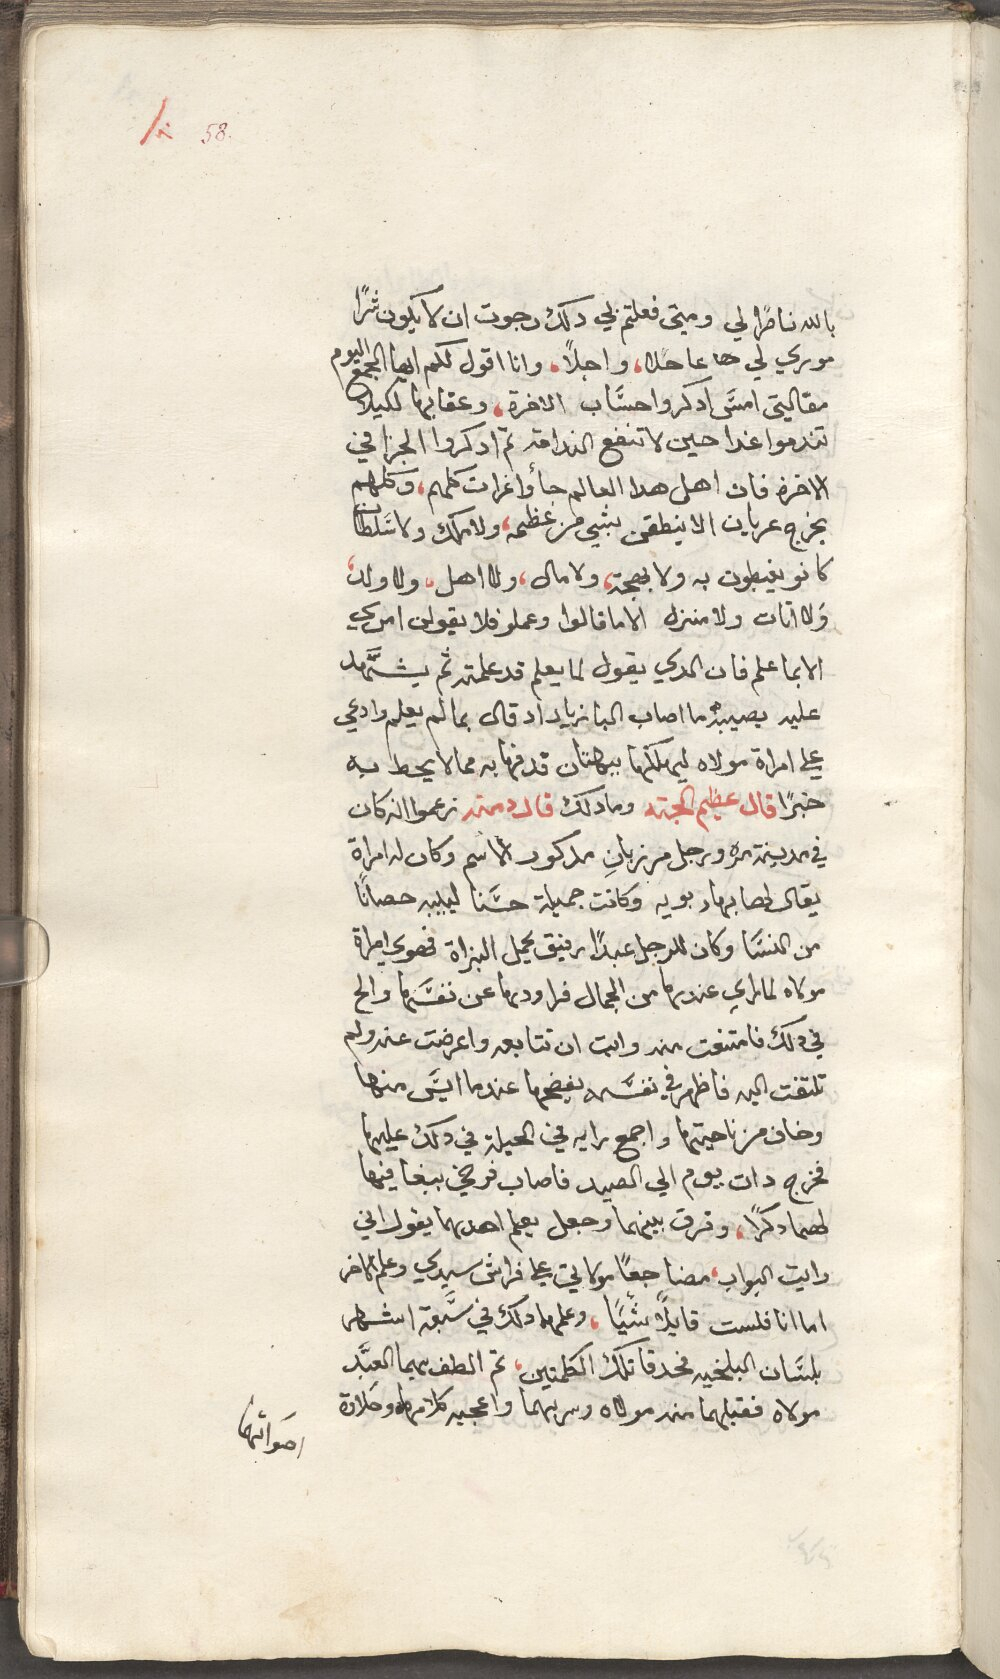 58.
بالله ناصرًا لي ومتى فعلتم لي دلك رجوت ان لا يكون شرًا
موري لي عاجلاً، واجلاً، وانا اقول لكم ايها الجمع اليوم
مقالتي امسَى ادكروا حسَاب الاخرة، وعقابها لكيلا
تندموا غدا حين لا تنفع الندامه تم ادكروا الجزا في
الاخره فان اهل هدا العالم جأوا عرات كلهم، وكلهم
يخرج عريان الا ينطقن بشي من عظمه، ولا ملك ولا سَلطان
كانو يغبطون به ولا بهجة، ولا مال، ولا اهل، ولا ولد،
وَلا اتات ولا منزله الا ما قالوا وعملو فلا يقولن امرى
الا بما علم فان الدي يقول لما يعلم قد علمته ثم يشَهد
عليه يصيبه ما اصاب البازيار اد قال بما لم يعلم وادعي
علي امراة مولاه ليهلكها ببهتان قدفها به مما لا يحط به
خبرًا قال عظيم الجند وما دلك قال دمنه زعموا انه كان
في مدينة مرو رجل مرزبان مدكور الاسم وكان له امراة
يقال لها بهار بويه وكانت جميلة حسَنا لبيبه حصانًا
من النسَا وكان للرجل عبدًا رفيق يحمل البزاة فهوي امراة
مولاه لما راي عندها من الجمال فراودها عن نفسَها والح
في دلك فامتنعت منه وابت ان تتابعه واعرضت عنه ولم
تلتفت اليه فاظهر في نفسَه بغضها عندما ايسَ منها
وخاف من ناحيتها واجمع رايه في الحيلة في دلك عليها
فخرج دات يوم الي الصيد فاصاب فرخي ببغا فيها
لهما دكرًا، وفرق بينهما وجعل يعلم احدهما يقول اني
رايت البواب، مضاجعًا مولاتي علي فراش سيدي وعلم الاخر
اما انا فلست قايلاً شيًا، وعلمها دلك في سَبعة اشهر
بلسَان البلخيه فحدقا تلك الكلمتين، تم الطف بهما العبَد
مولاه فقبلهما منه مولاه وسر بهما واعجبه كلامهما وحلاوة
اصَواتهما